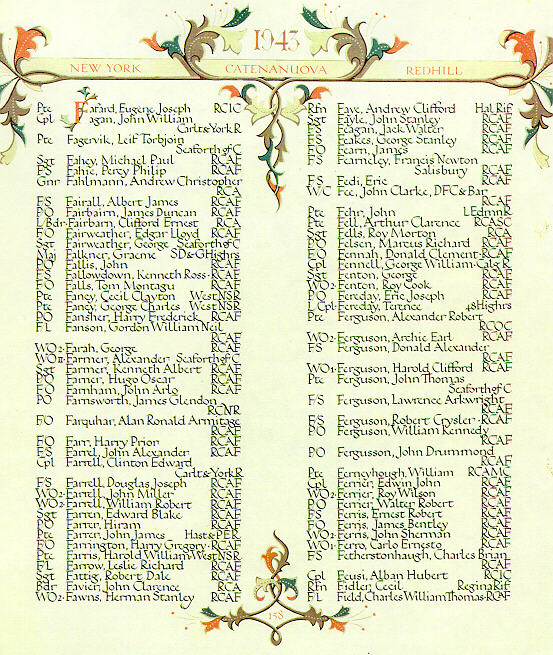 1943
NEW YORK
CATENANUOVA
REDHILL
Pte Fafard, Eugene Joseph RCIC
Cpl Fagan, John William
Carlt&YorkR
Pte Fagervik, Leif Torbjoin
Seaforth of C
Sgt Fahey, Michael Paul RCAF
FS Fahie, Percy Philip RCAF
Gnr Fahlmann, Andrew Christopher
RCA
FS Fairall, Albert James RCAF
PO Fairbairn, James Duncan RCAF
LBdr Fairbairn, Clifford Ernest RCA
FO Fairweather, Edgar Lloyd RCAF
Sgt Fairweather, George Seaforth of C
Maj Falkner, Graeme SD&GHighrs
PO Fallis, John RCAF
FS Fallowdown, Kenneth Ross RCAF
FO Falls, Tom Montagu RCAF
Pte Faney, Cecil Clayton WestNSR
Pte Faney, George Charles WestNSR
PO Fansher, Harry Frederick RCAF
FL Fanson, Gordon William Neil
RCAF
WO2 Farah, George RCAF
WOII Farmer, Alexander Seaforth of C
Sgt Farmer, Kenneth Albert RCAF
PO Farmer, Hugo Oscar RCAF
FO Farnham, John Arlo RCAF
PO Farnsworth, James Glendon
RCNR
FO Farquhar, Alan Ronald Armitage
RCAF
FO Farr, Harry Prior RCAF
FS Farrel, John Alexander RCAF
Cpl Farrell, Clinton Edward
Carlt&YorkR
FS Farrell, Douglas Joseph RCAF
WO2 Farrell, John Miller RCAF
WO2 Farrell, William Robert RCAF
Sgt Farren, Edward Blake RCAF
PO Farrer, Hiram RCAF
Pte Farrer, John James Hast&PER
FO Farrington, Harry Gregory RCAF
Pte Farris, Harold William WestNSR
FL Farrow, Leslie Richard RCAF
Sgt Fattig, Robert Dale RCAF
Bdr Favier, John Clarence RCA
WO2 Fawns, Herman Stanley RCAF
Rfn Faye, Andrew Clifford Hal Rif
Sgt Fayle, John Stanley RCAF
FS Feagan, Jack Walter RCAF
FS Feakes, George Stanley RCAF
FO Fearn, James RCAF
FS Fearneley, Francis Newton
Salisbury RCAF
FS Fedi, Eric RCAF
WC Fee, John Clarke, DFC & Bar
RCAF
Pte Fehr, John LEdmnR
Pte Fell, Arthur Clarence RCASC
Sgt Fells, Roy Morton RCA
PO Felsen, Marcus Richard RCAF
FO Fennah, Donald Clement RCAF
Cpl Fennell, George William CalgR
Sgt Fenton, George RCAF
WO2 Fenton, Roy Cook RCAF
PO Fereday, Eric Joseph RCAF
LCpl Fereday, Terence 48Highrs
Pte Ferguson, Alexander Robert
RCOC
WO2 Ferguson, Archie Earl RCAF
FS Ferguson, Donald Alexander
RCAF
WO1 Ferguson, Harold Clifford RCAF
Pte Ferguson, John Thomas
Seaforth of C
FS Ferguson, Lawrence Arkwright
RCAF
FS Ferguson, Robert Crysler RCAF
PO Ferguson, William Kennedy
RCAF
PO Fergusson, John Drummond
RCAF
Pte Ferneyhough, William RCAMC
Cpl Ferrier, Edwin John RCAF
WO2 Ferrier, Roy Wilson RCAF
PO Ferrier, Walter Robert RCAF
FS Ferris, Ernest Robert RCAF
FO Ferris, James Bentley RCAF
WO2 Ferris, John Sherman RCAF
WO1 Ferro, Carlo Ernesto RCAF
FS Fetherstonhaugh, Charles Brian
RCAF
Cpl Feusi, Alban Hubert RCIC
Rfn Fidler, Cecil ReginaRif
FL Field, Charles William Thomas RCAF
158